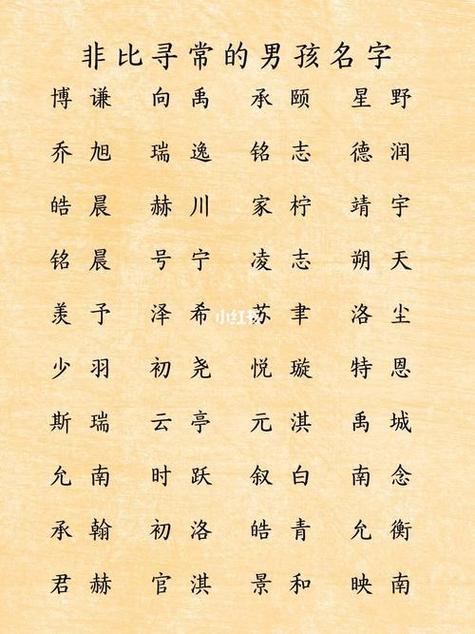 非比寻常的男孩名字
博谦 向禹 承颐 星野
乔旭 瑞逸 铭志 德润
皓晨 赫川 家柠 靖宇
铭晨 号宁 凌志 朔天
羡予 泽希 苏聿 洛尘
少羽 初尧 悦璇 特恩
斯瑞 云亭 元淇 禹城
允南 时跃 叙白 南念
承翰 初洛 皓青 允衡
君赫 官淇 景和 映南
小红书